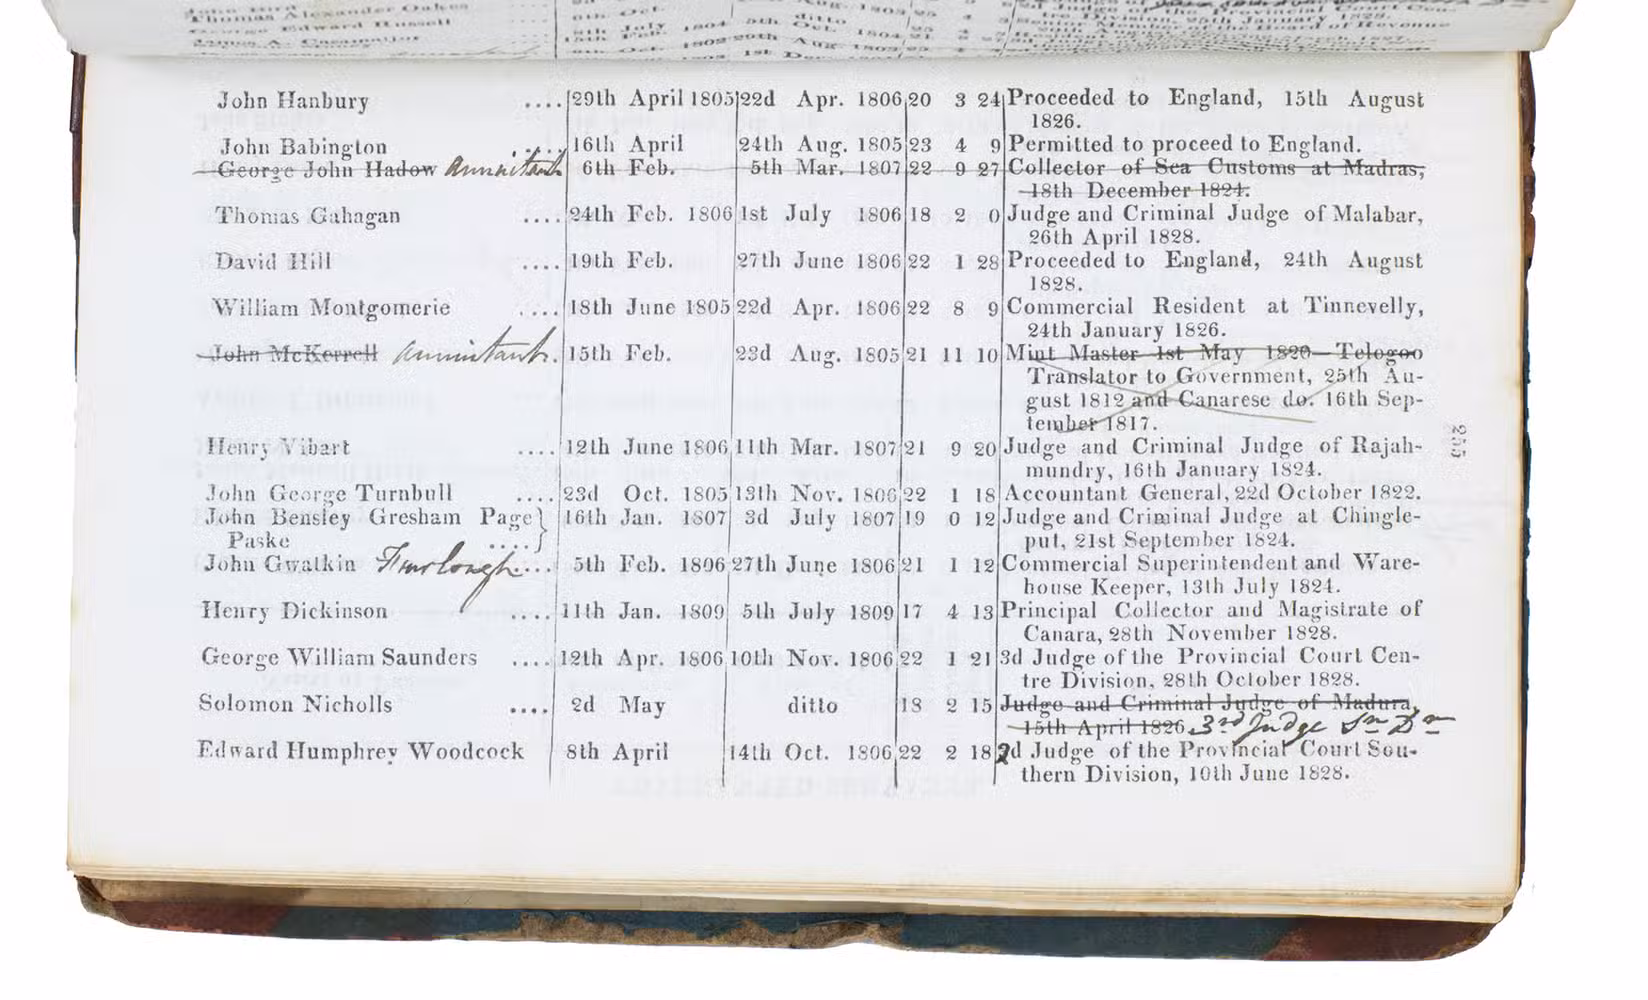 Thomas Alexander Oakes
George Edward Russell
James A. Casamajor
John Hanbury .... 29th April 1805 22d Apr. 1806 20 3 24 Proceeded to England, 15th August
1826.
John Babington .... 16th April 24th Aug. 1805 23 4 9 Permitted to proceed to England.
George John Hadow annuitant 6th Feb. 5th Mar. 1807 22 9 27 Collector of Sea Customs at Madras,
18th December 1824.
Thomas Gahagan .... 24th Feb. 1806 1st July 1806 18 2 0 Judge and Criminal Judge of Malabar,
26th April 1828.
David Hill .... 19th Feb. 27th June 1806 22 1 28 Proceeded to England, 24th August
1828.
William Montgomerie .... 18th June 1805 22d Apr. 1806 22 8 9 Commercial Resident at Tinnevelly,
24th January 1826.
John McKerrell annuitant. 15th Feb. 23d Aug. 1805 21 11 10 Mint Master 1st May 1820—Telogoo
Translator to Government, 25th Au-
gust 1812 and Canarese do. 16th Sep-
tember 1817.
Henry Vibart .... 12th June 1806 11th Mar. 1807 21 9 20 Judge and Criminal Judge of Rajah-
mundry, 16th January 1824.
John George Turnbull .... 23d Oct. 1805 13th Nov. 1806 22 1 18 Accountant General, 22d October 1822.
John Bensley Gresham Page } 16th Jan. 1807 3d July 1807 19 0 12 Judge and Criminal Judge at Chingle-
Paske .... put, 21st September 1824.
John Gwatkin Furlough ... 5th Feb. 1806 27th June 1806 21 1 12 Commercial Superintendent and Ware-
house Keeper, 13th July 1824.
Henry Dickinson .... 11th Jan. 1809 5th July 1809 17 4 13 Principal Collector and Magistrate of
Canara, 28th November 1828.
George William Saunders .... 12th Apr. 1806 10th Nov. 1806 22 1 21 3d Judge of the Provincial Court Cen-
tre Division, 28th October 1828.
Solomon Nicholls .... 2d May ditto 18 2 15 Judge and Criminal Judge of Madura,
15th April 1826. 3rd Judge Sn Dn
Edward Humphrey Woodcock 8th April 14th Oct. 1806 22 2 18 2d Judge of the Provincial Court Sou-
thern Division, 10th June 1828.